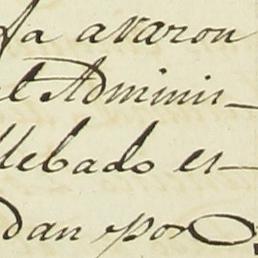 fa avaron
el Adminis_
llebado es_
dan por